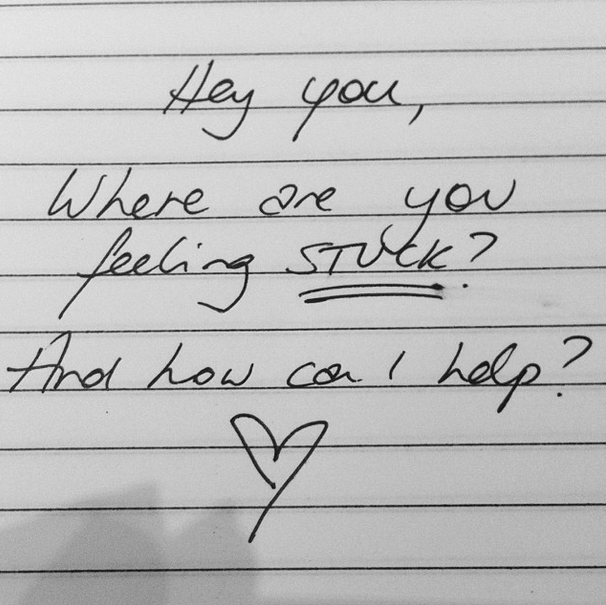 Hey you,
Where are you
feeling STUCK?
And how can I help?